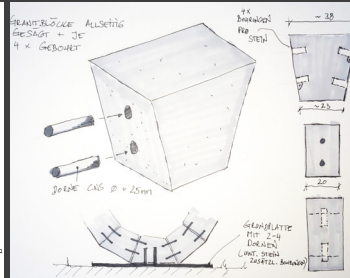 GRANITBLÖCKE ALLSEITIG
GESÄGT + JE
4 × GEBOHRT
4×
BOHRUNGEN
PRO
STEIN
~ 38
~ 25
20
DORNE CNS Ø ~ 25mm
GRUNDPLATTE
MIT 2-4
DORNEN
STEIN